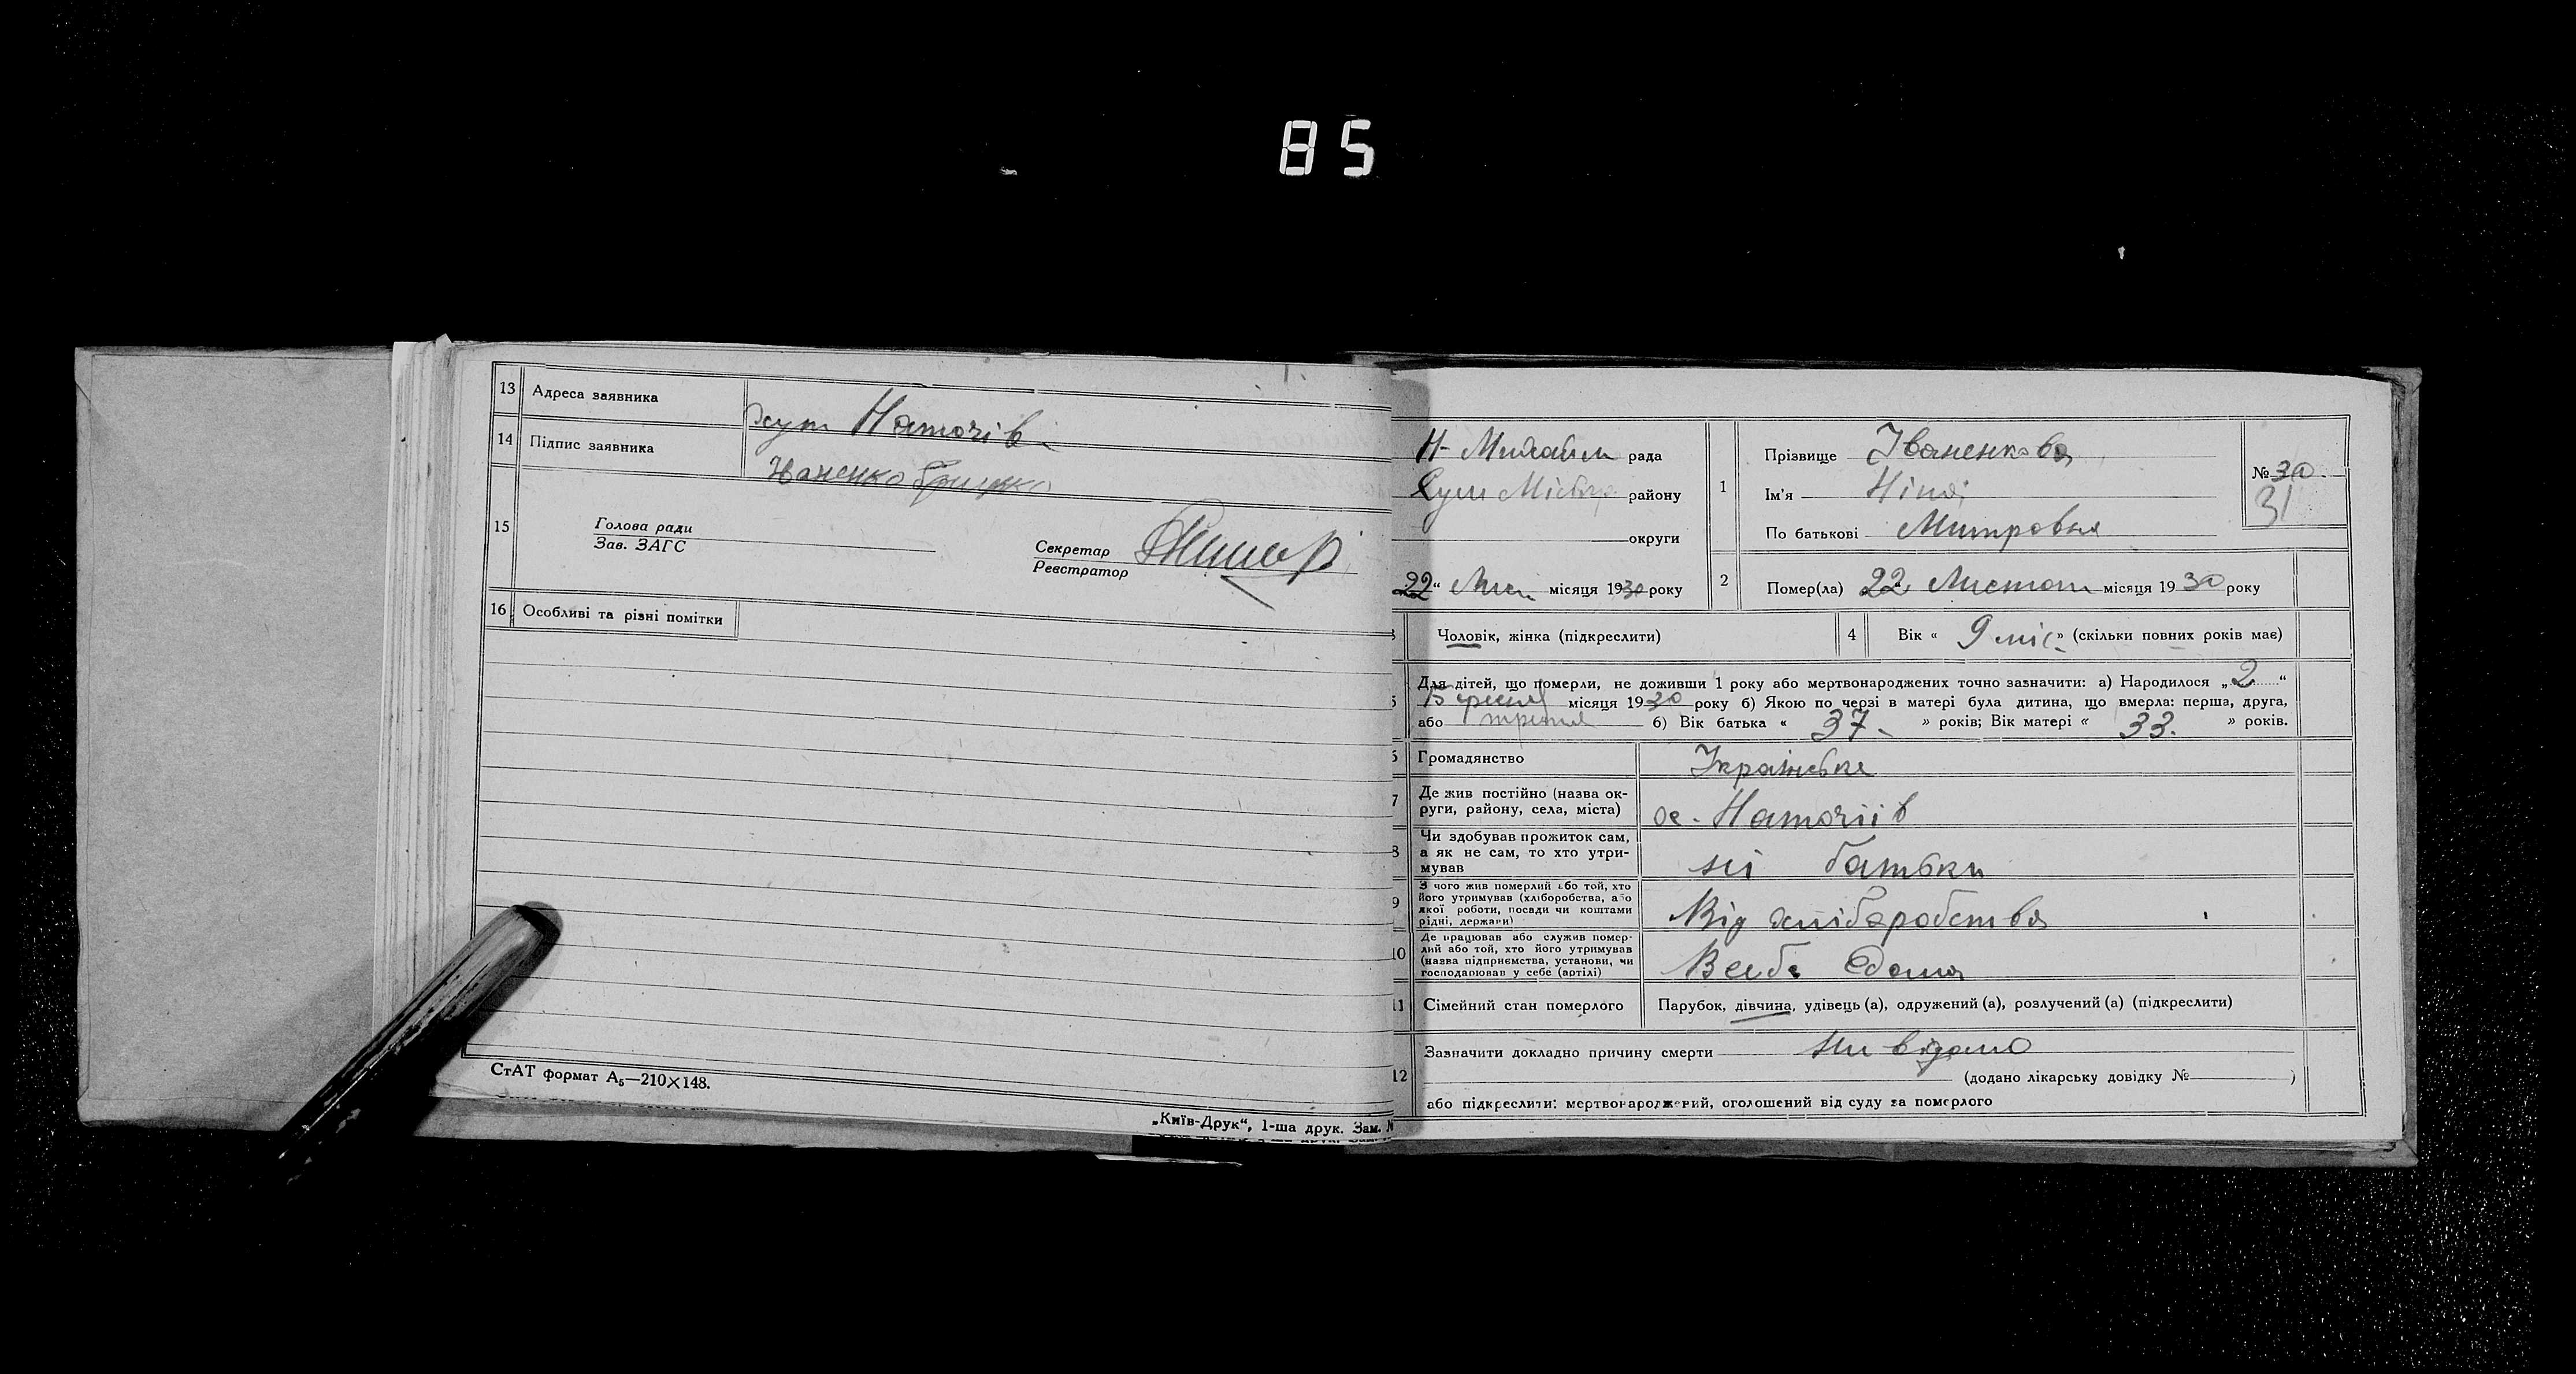 85
13 Адреса заявника хут Наточів
14 Підпис заявника
15 Голова ради
Зав. ЗАГС
Секретар
Реєстратор
16 Особливі та різні помітки
СтАТ формат А₅—210×148.
„Київ-Друк“, 1-ша друк. Зам. №
Н- Михайл рада
району
округи
22“ Лис. місяця 1930 року
1 Прізвище Іваненкова
Ім'я Ніна
По батькові Митровна
№ 30
31
2 Помер(ла) 22 Листоп місяця 1930 року
Чоловік, жінка (підкреслити)
4 Вік « 9 міс. » (скільки повних років має)
Для дітей, що померли, не доживши 1 року або мертвонароджених точно зазначити: а) Народилося „2“
місяця 1930 року б) Якою по черзі в матері була дитина, що вмерла: перша, друга,
або третя б) Вік батька « 37 » років; Вік матері « 33. » років.
Громадянство Українське
7 Де жив постійно (назва округи, району, села, міста) ос. Наточіів
8 Чи здобував прожиток сам, а як не сам, то хто утримував ні батьки
9 З чого жив померлий або той, хто його утримував (хліборобства, або якої роботи, посади чи коштами рідні, держави) Від хліборобства
10 Де працював або служив померлий або той, хто його утримував (назва підприємства, установи, чи господарював у себе (артілі)
11 Сімейний стан померлого Парубок, дівчина, удівець (а), одружений (а), розлучений (а) (підкреслити)
12 Зазначити докладно причину смерти Ни відомо
(додано лікарську довідку № )
або підкреслити: мертвонароджений, оголошений від суду за померлого